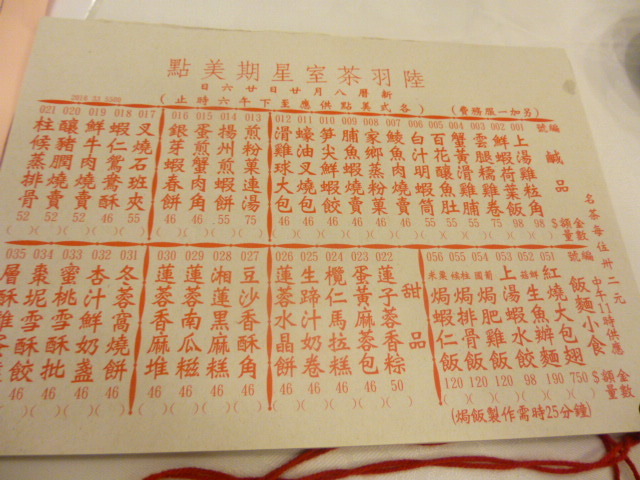 陸羽茶室星期美點
新曆八月廿日廿六日
(各式美點供應至下午六時止)
(另加一服務費)
名茶每位卅二元
編號
鹹品
金額$
數量
001 上湯雞粒角
002 鮮蝦荷葉飯
003 雲腿糯雞卷
004 蟹黃滑雞脯
005 百花釀魚肚
006 白汁明蝦筒
007 鯪魚肉燒賣
008 家鄉蒸粉菓 46
009 脯魚蝦燒賣 46
010 笋尖鮮蝦餃 46
011 蠔油叉燒包 46
012 滑雞球大包 46
013 煎粉菓連湯 75
014 揚州煎蝦餅 55
015 蛋煎蟹肉角 46
016 銀芽蝦春餅 46
017 叉燒石班夾
018 蝦仁鴛鴦酥
019 鮮牛肉燒賣
020 釀豬膶燒賣 52
021 柱候蒸排骨 52
飯麵小食
中午11時供應
編號
金額$
數量
051 紅燒大包翅 750
052 鮮菇生魚瓣麵 190
053 上湯蝦水餃 98
054 葡國焗肥雞飯 120
055 柱候焗排骨飯 120
056 粟米焗蝦仁飯 120
(焗飯製作需時25分鐘)
甜品
022 蓮子蓉香粽 50
023 蛋黃麻蓉包 46
024 欖仁馬拉糕 46
025 生磨蹄汁奶卷 46
026 蓮蓉水晶餅 46
027 豆沙香酥角 46
028 湘蓮黑麻糕 46
029 蓮蓉南瓜糍 46
030 蓮蓉香麻堆 46
031 冬蓉窩燒餅 46
032 杏汁鮮奶盞 46
033 蜜桃雪酥批 46
034 棗坭雪酥餃 46
035